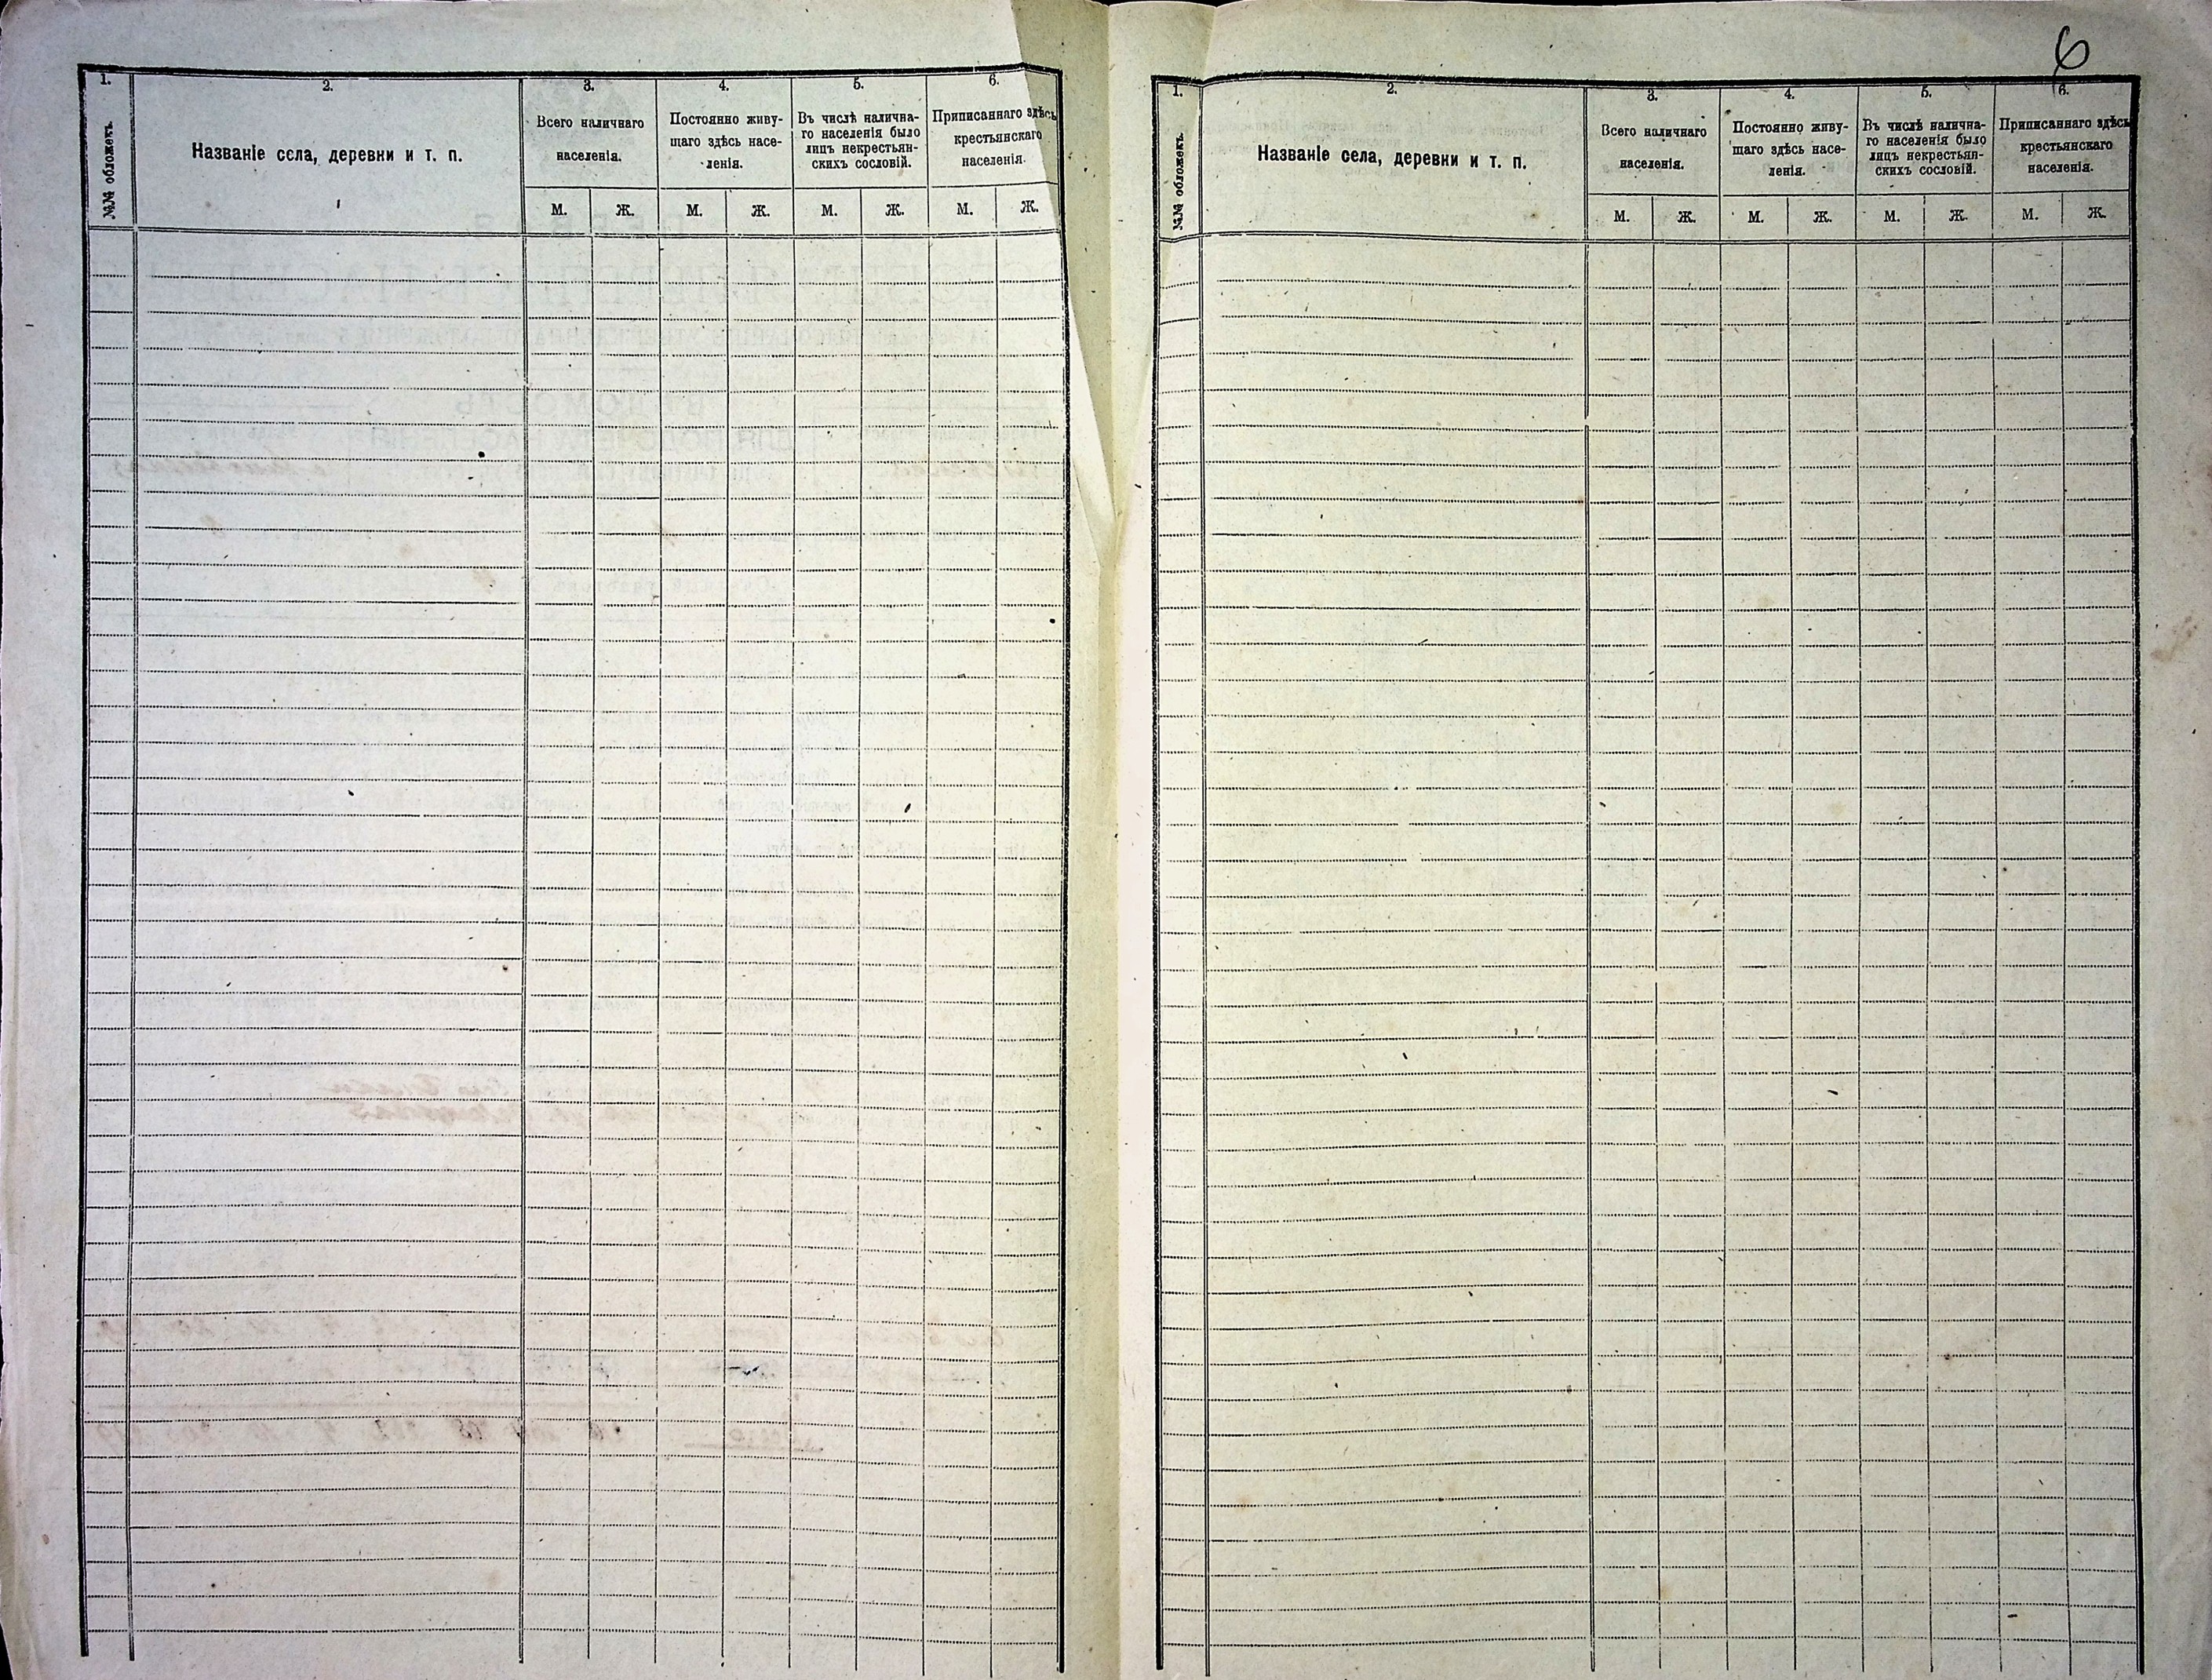 6
1. 2. 3. 4. 5. 6.
№№ обложекъ.
Названіе села, деревни и т. п.
Всего наличнаго
населенія.
Постоянно живу-
щаго здѣсь насе-
ленія.
Въ числѣ налична-
го населенія было
лицъ некрестьян-
скихъ сословій.
Приписаннаго здѣсь
крестьянскаго
населенія.
М. Ж. М. Ж. М. Ж. М. Ж.
1. 2. 3. 4. 5. 6.
№№ обложекъ.
Названіе села, деревни и т. п.
Всего наличнаго
населенія.
Постоянно живу-
щаго здѣсь насе-
ленія.
Въ числѣ налична-
го населенія было
лицъ некрестьян-
скихъ сословій.
Приписаннаго здѣсь
крестьянскаго
населенія.
М. Ж. М. Ж. М. Ж. М. Ж.